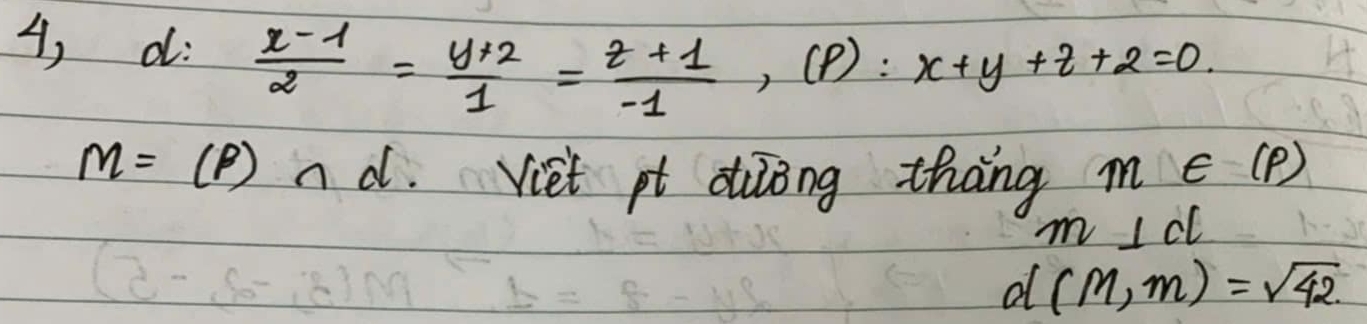 4, d: (x-1)/2 = (y+2)/1 = (z+1)/-1, (P): x+y+z+2=0.
M = (P) ∩ d. Viết pt đường thẳng m ∈ (P)
m ⊥ d
d(M,m) = √42.